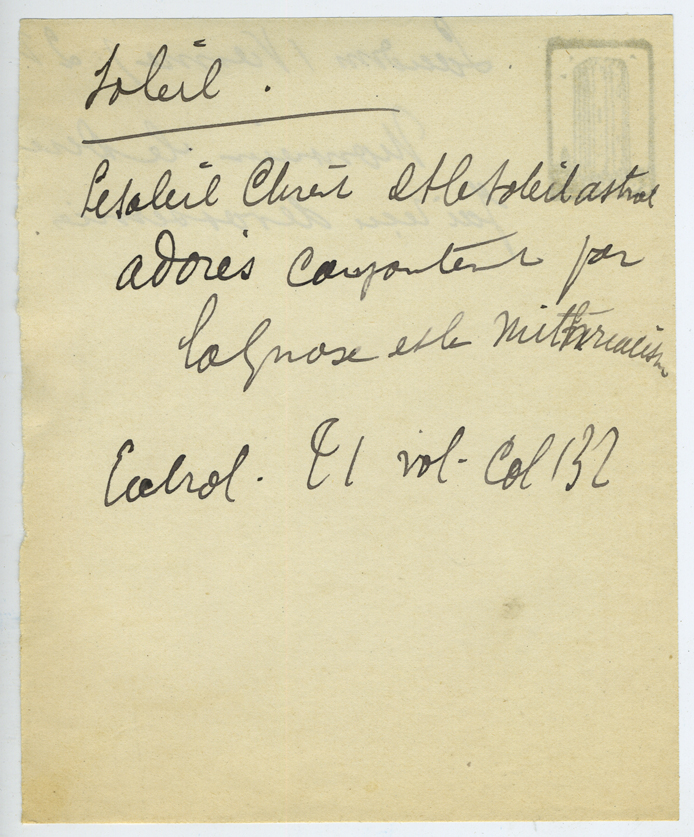 Soleil.
Le soleil Christ et le soleil astral
adorés conjointement par
la gnose et le Mithriacisme
Cabrol. T 1 vol. Col 132